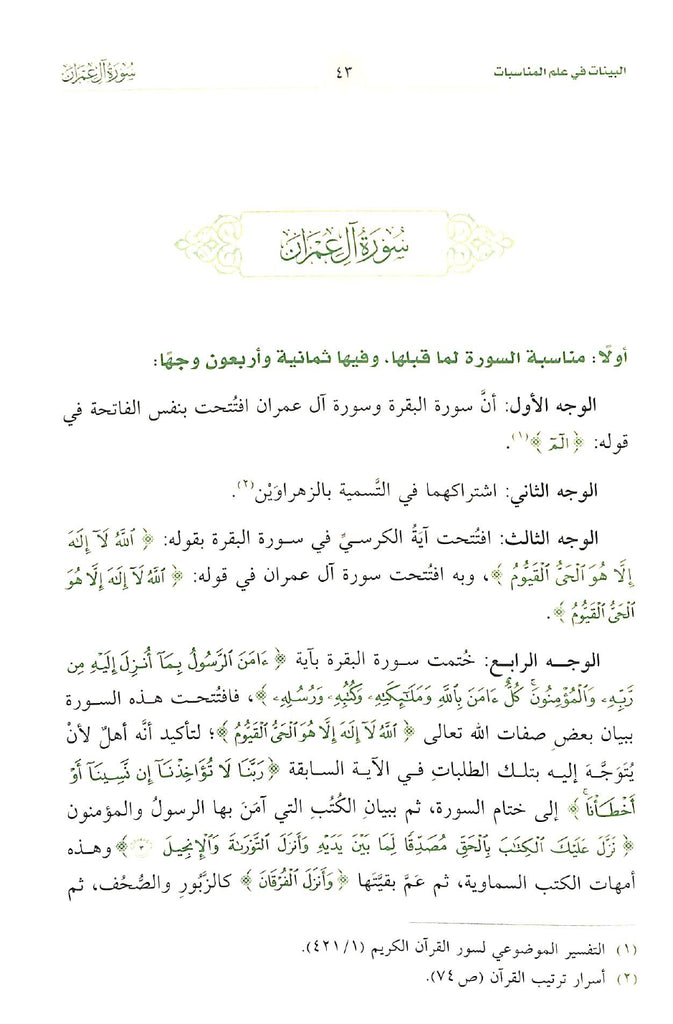 البينات في علم المناسبات ٤٣ سُورَةُ آلِ عِمْرَانَ
سُورَةُ آلِ عِمْرَانَ
أولًا: مناسبة السورة لما قبلها، وفيها ثمانية وأربعون وجهًا:
الوجه الأول: أنَّ سورة البقرة وسورة آل عمران افتُتحت بنفس الفاتحة في
قوله: ﴿ الٓمٓ ﴾(١).
الوجه الثاني: اشتراكهما في التَّسمية بالزهراوَيْن(٢).
الوجه الثالث: افتُتحت آيَةُ الكرسيِّ في سورة البقرة بقوله: ﴿ ٱللَّهُ لَآ إِلَٰهَ
إِلَّا هُوَ ٱلْحَىُّ ٱلْقَيُّومُ ﴾، وبه افتُتحت سورة آل عمران في قوله: ﴿ ٱللَّهُ لَآ إِلَٰهَ إِلَّا هُوَ
ٱلْحَىُّ ٱلْقَيُّومُ ﴾.
الوجه الرابع: خُتمت سورة البقرة بآية ﴿ ءَامَنَ ٱلرَّسُولُ بِمَآ أُنزِلَ إِلَيْهِ مِن
رَّبِّهِۦ وَٱلْمُؤْمِنُونَ ۚ كُلٌّ ءَامَنَ بِٱللَّهِ وَمَلَٰٓئِكَتِهِۦ وَكُتُبِهِۦ وَرُسُلِهِۦ ﴾، فافتُتحت هذه السورة
ببيان بعض صفات الله تعالى ﴿ ٱللَّهُ لَآ إِلَٰهَ إِلَّا هُوَ ٱلْحَىُّ ٱلْقَيُّومُ ﴾؛ لتأكيد أنَّه أهلٌ لأنْ
يُتَوَجَّهَ إليه بتلك الطلبات في الآية السابقة ﴿ رَبَّنَا لَا تُؤَاخِذْنَآ إِن نَّسِينَآ أَوْ
أَخْطَأْنَا ۚ ﴾ إلى ختام السورة، ثم ببيان الكُتُبِ التي آمَنَ بها الرسولُ والمؤمنون
﴿ نَزَّلَ عَلَيْكَ ٱلْكِتَٰبَ بِٱلْحَقِّ مُصَدِّقًا لِّمَا بَيْنَ يَدَيْهِ وَأَنزَلَ ٱلتَّوْرَىٰةَ وَٱلْإِنجِيلَ ﴾ وهذه
أمهات الكتب السماوية، ثم عَمَّ بقيَّتَها ﴿ وَأَنزَلَ ٱلْفُرْقَانَ ﴾ كالزَّبُورِ والصُّحُف، ثم
(١) التفسير الموضوعي لسور القرآن الكريم (١/ ٤٢١).
(٢) أسرار ترتيب القرآن (ص ٧٤).